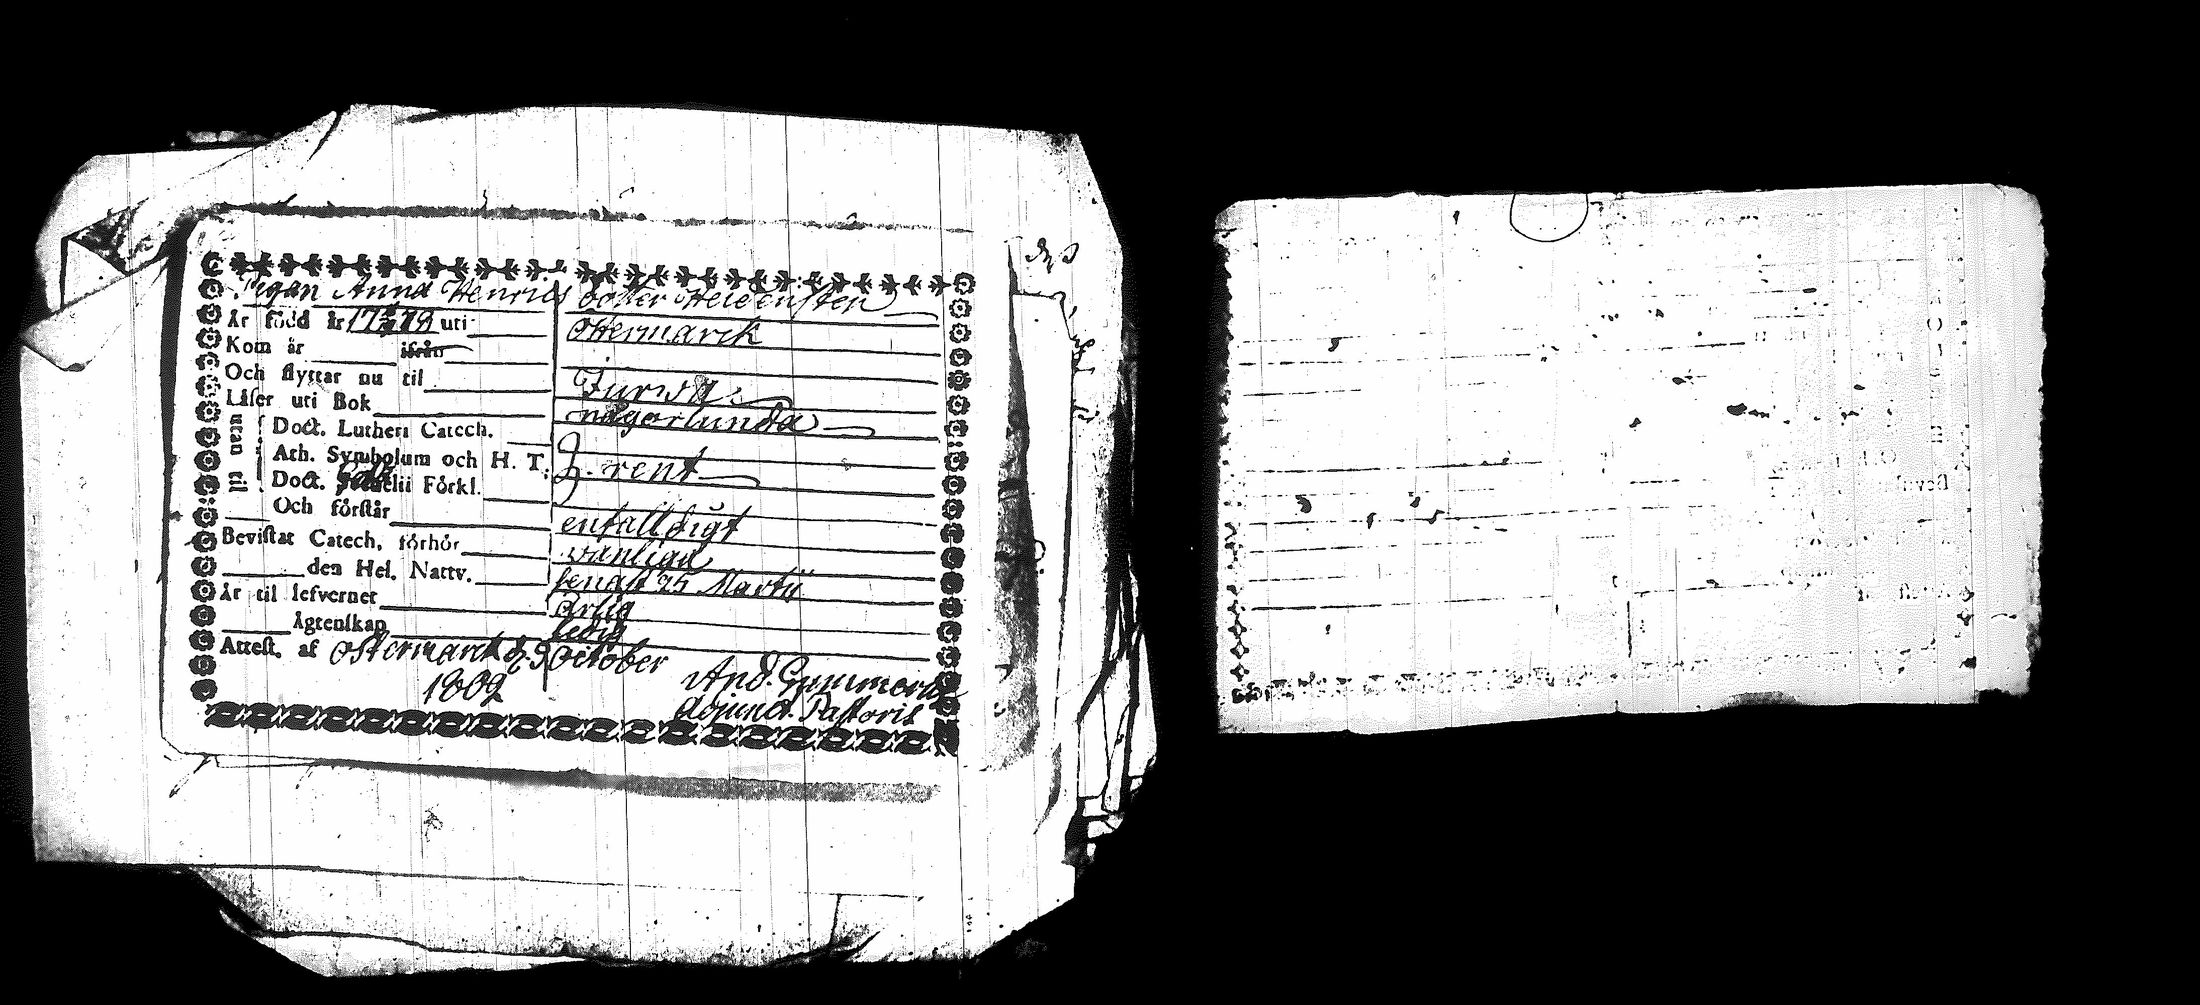 Pigan Anna Henrics dotter Heidensten
År född år 1779 uti Östermarck
Kom år ifrån
Och flyttar nu til Jurva
Läser uti Bok någorlunda
utan til
Doct. Lutheri Catech.
Ath. Symbolum och H. T. rent
Doct. Förkl.
Och förstår enfalldigt
Bevistat Catech. förhör vanliga
den Hel. Nattv. senast 25 Martii
År til lefvernet Ärlig
Ägtenskap ledig
Attest. af Östermarck d. 9 October
1802 And.
Adjunct. Pastoris